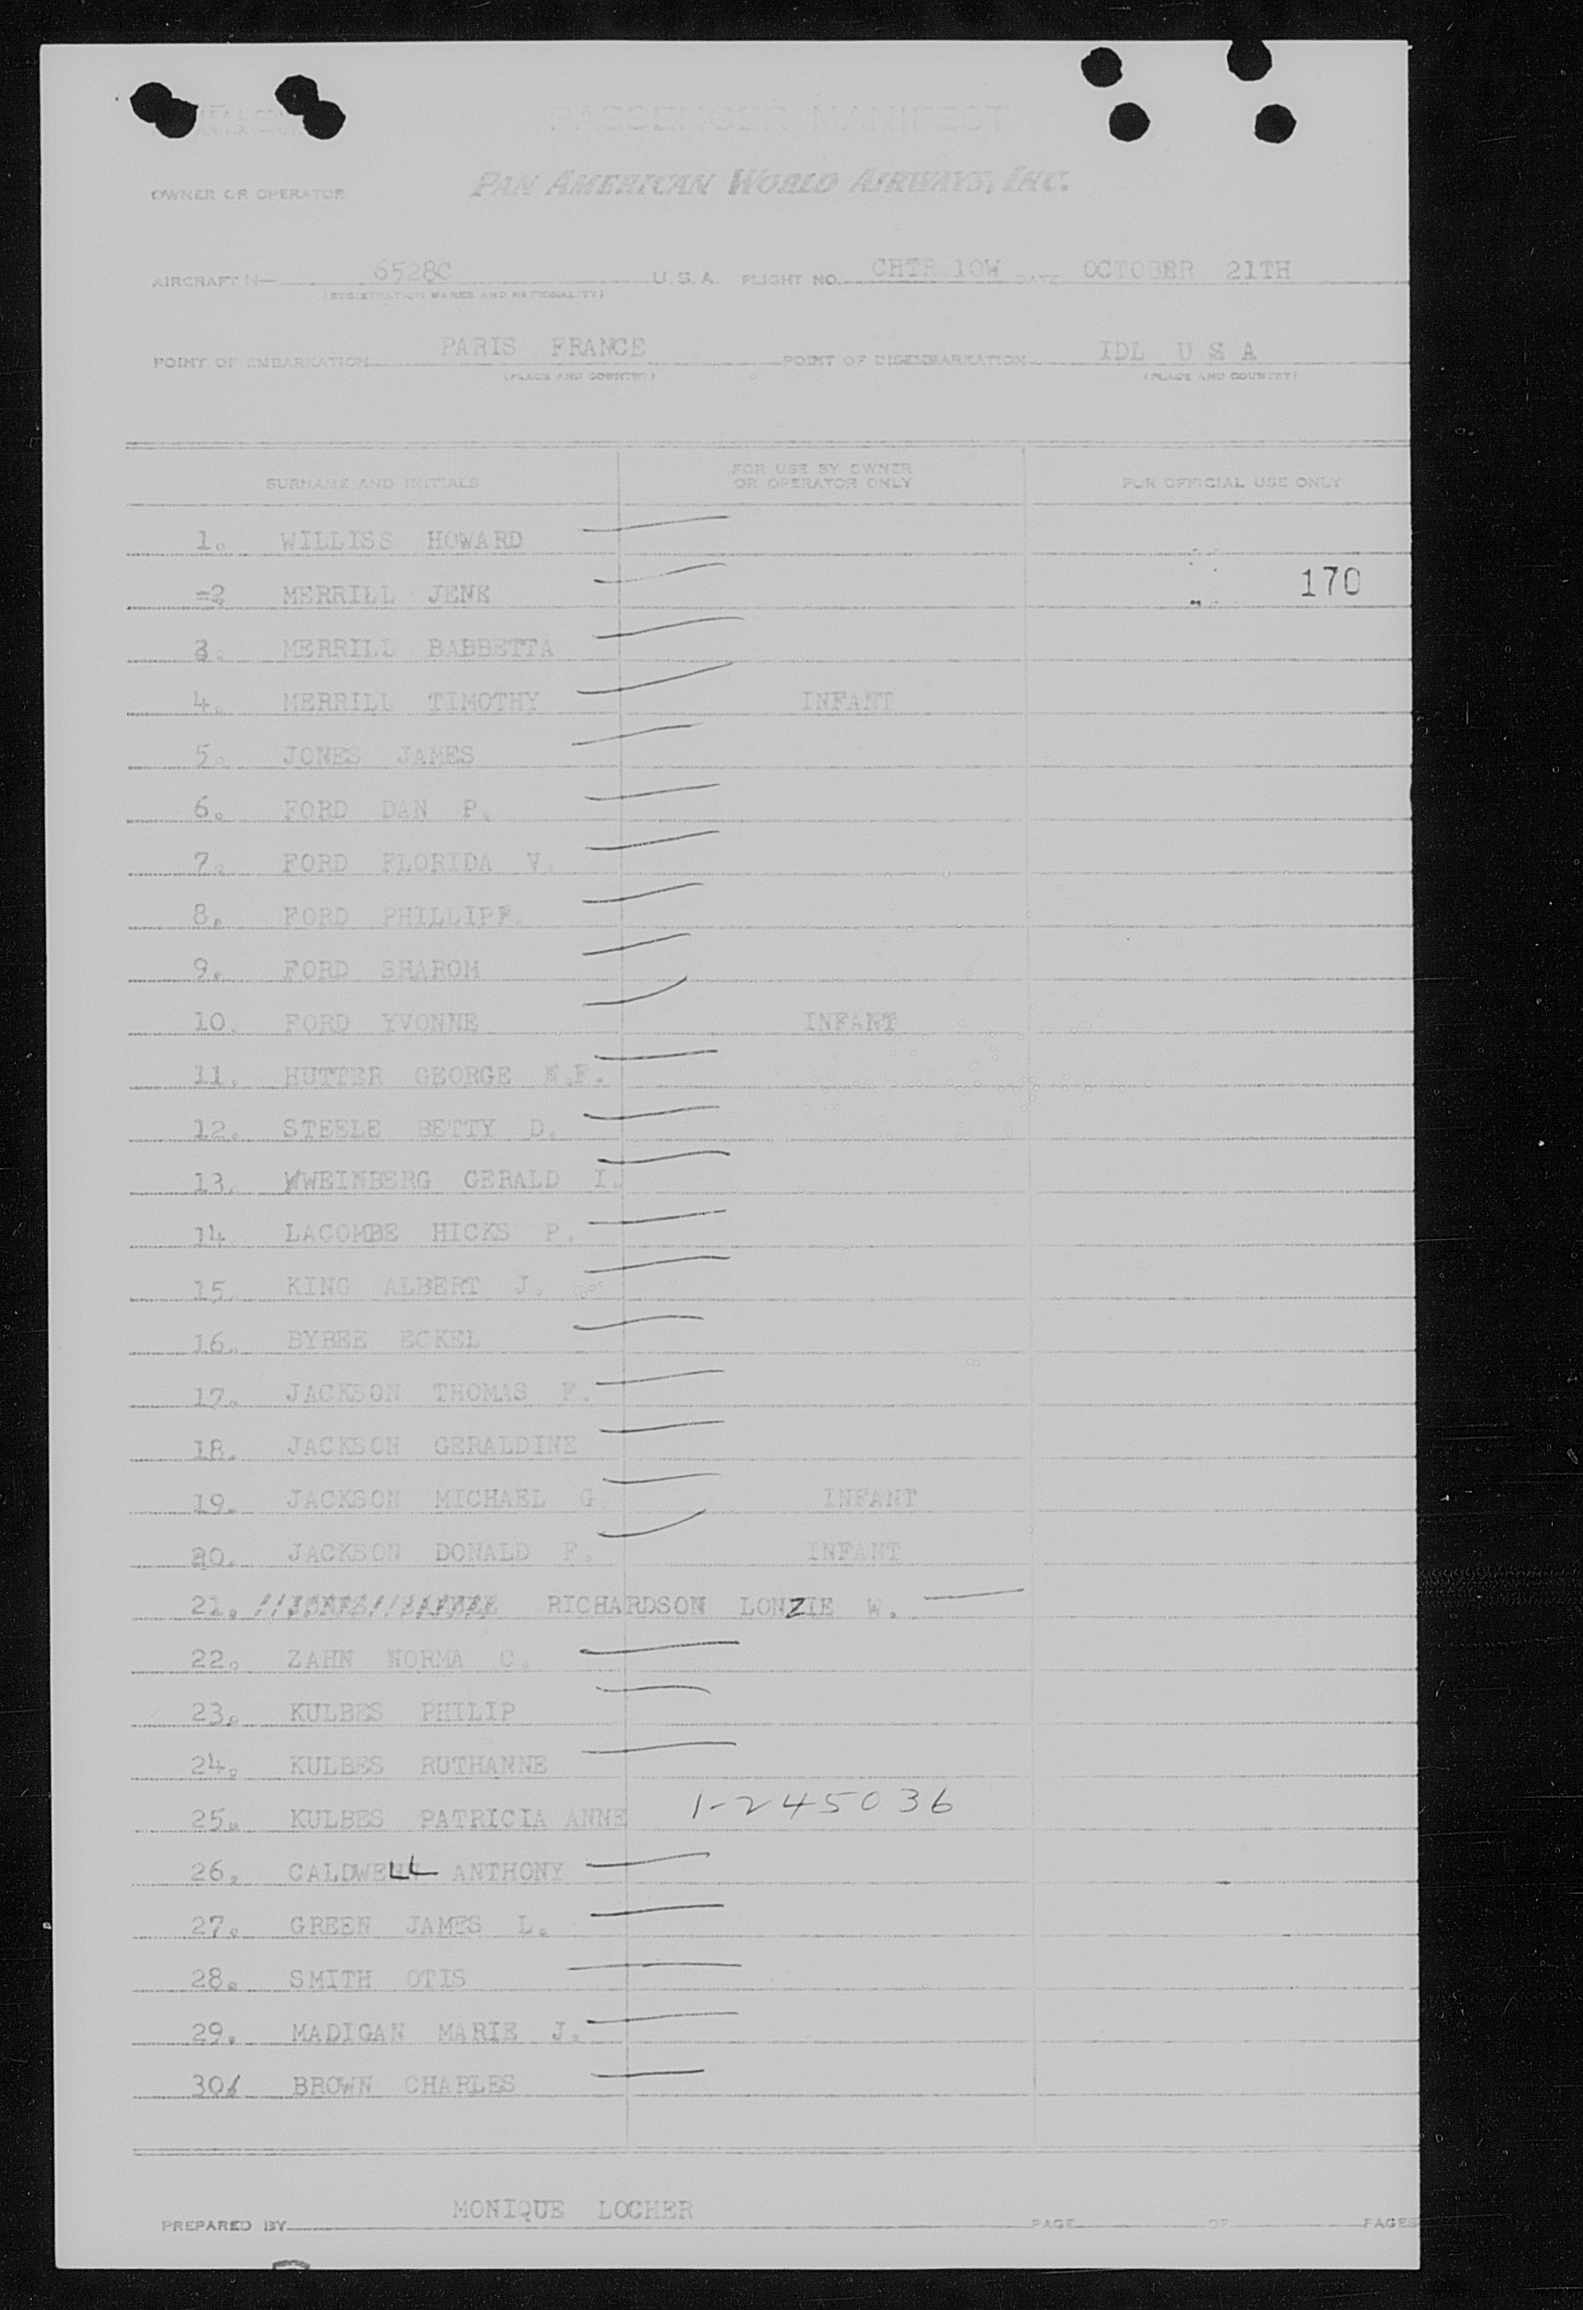 PASSENGER MANIFEST
OWNER OR OPERATOR PAN AMERICAN WORLD AIRWAYS, INC.
AIRCRAFT N— 6528C U.S.A. FLIGHT NO. CHTR 10W DATE OCTOBER 21TH
(REGISTRATION MARKS AND NATIONALITY)
POINT OF EMBARKATION PARIS FRANCE POINT OF DISEMBARKATION IDL U S A
(PLACE AND COUNTRY) (PLACE AND COUNTRY)
SURNAME AND INITIALS FOR USE BY OWNER OR OPERATOR ONLY FOR OFFICIAL USE ONLY
1. WILLISS HOWARD
2 MERRILL JENE 170
3. MERRILL BABBETTA
4. MERRILL TIMOTHY INFANT
5. JONES JAMES
6. FORD DAN P.
7. FORD FLORIDA V.
8. FORD PHILLIPF.
9. FORD SHAROM
10. FORD YVONNE INFANT
11. HUTTER GEORGE F.
12. STEELE BETTY D.
13. WWEINBERG GERALD I.
14 LACOMBE HICKS P.
15. KING ALBERT J.
16. BYBEE ECKEL
17. JACKSON THOMAS F.
18. JACKSON GERALDINE
19. JACKSON MICHAEL G INFANT
20. JACKSON DONALD F. INFANT
21. RICHARDSON LONZIE W.
22. ZAHN NORMA C.
23. KULBES PHILIP
24. KULBES RUTHANNE
25. KULBES PATRICIA ANNE 1-245036
26. CALDWELL ANTHONY
27. GREEN JAMES L.
28. SMITH OTIS
29. MADIGAN MARIE J.
30 BROWN CHARLES
PREPARED BY MONIQUE LOCHER PAGE OF PAGES